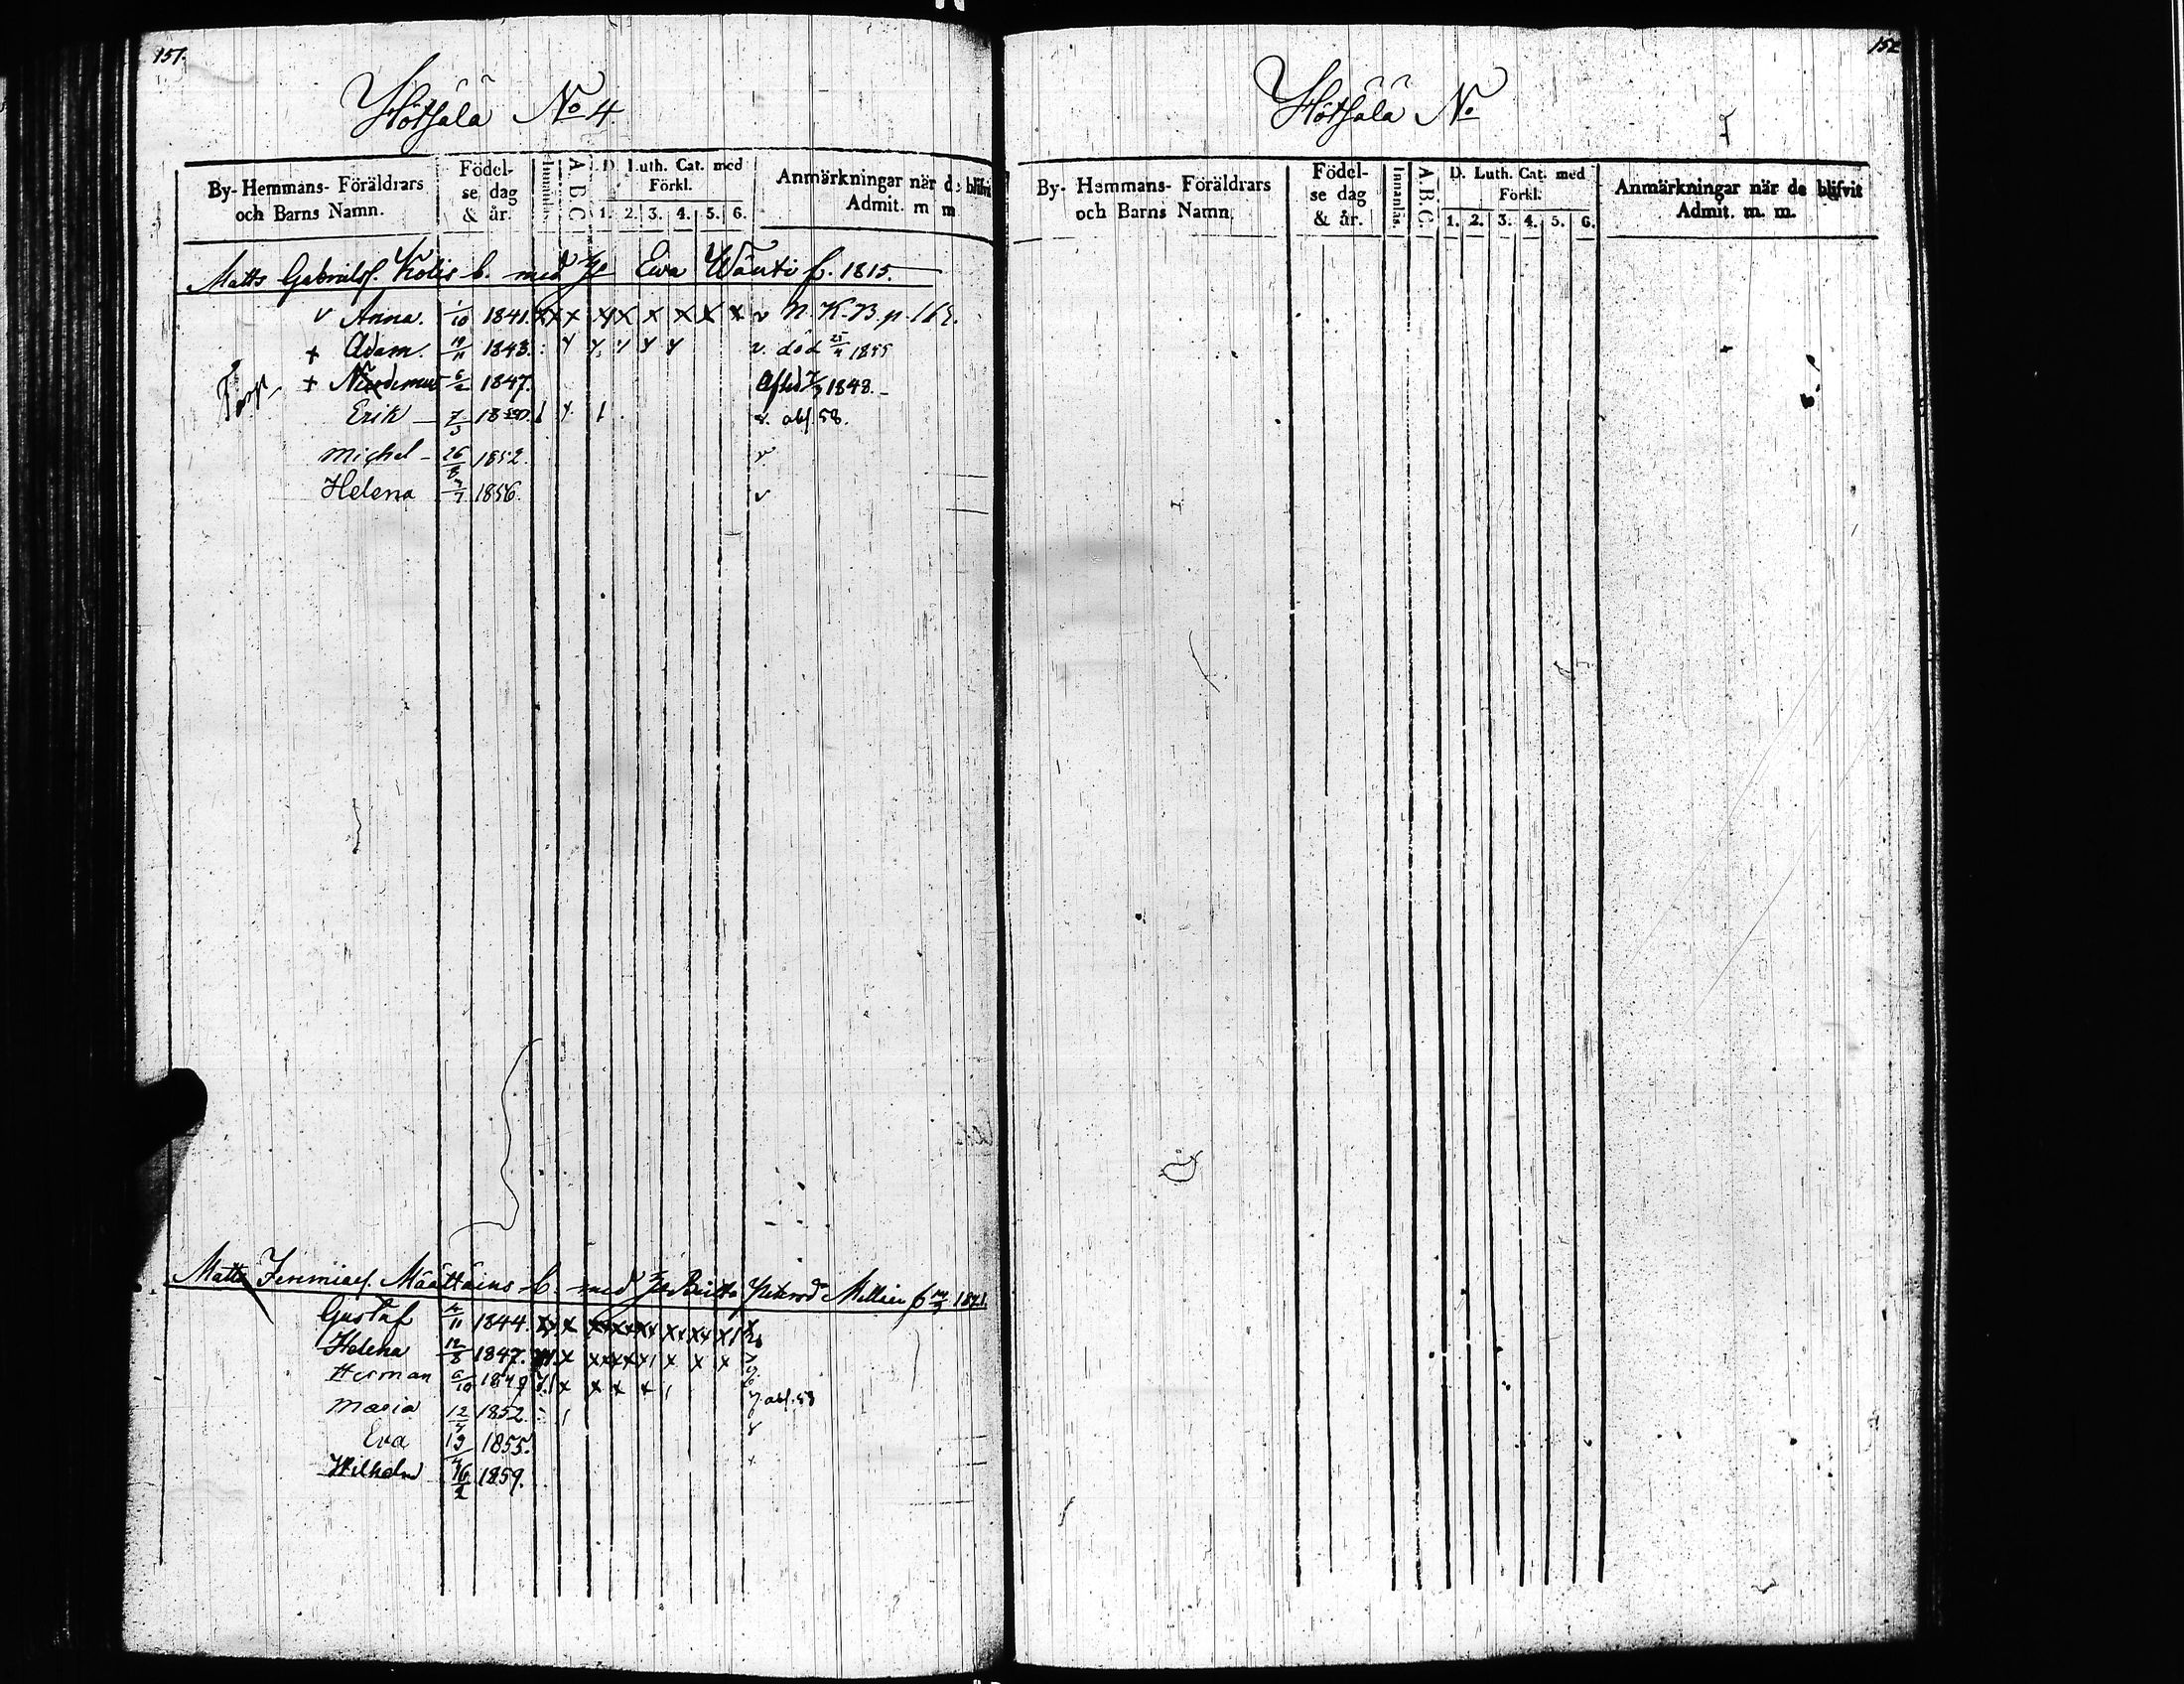 151.
Hötsälä No 4.
By- Hemmans- Föräldrars och Barns Namn. Födelse dag & år. Innanläs. A.B.C. D. Luth. Cat. med Förkl. 1. 2. 3. 4. 5. 6. Anmärkningar när de blifvit Admit. m m
Matts Gabrielsf. b. med Ewa f. 1815.
v Anna. 1/10 1841. x x x x x x x x v N. K. B. p.
+ Adam. 19/11 1843. v. död 25/4 1855
Torp.
+ 6/2 1847. Afled 1848.
Erik 7/3 1850. abs. 58.
Michel 26/8 1852. v
Helena 7/7 1856. v
Matts Jeremiaes. Määttäins b. med Britta
Gustaf 1844.
Helena 12/8 1847.
Herman 6/10 1849 abs. 58
Maria 12/4 1852.
Eva 19 1855.
Wilhelm 16/2 1859.
152
Hötsälä No
By- Hemmans- Föräldrars och Barns Namn. Födelse dag & år. Innanläs. A.B.C. D. Luth. Cat. med Förkl. 1. 2. 3. 4. 5. 6. Anmärkningar när de blifvit Admit. m. m.